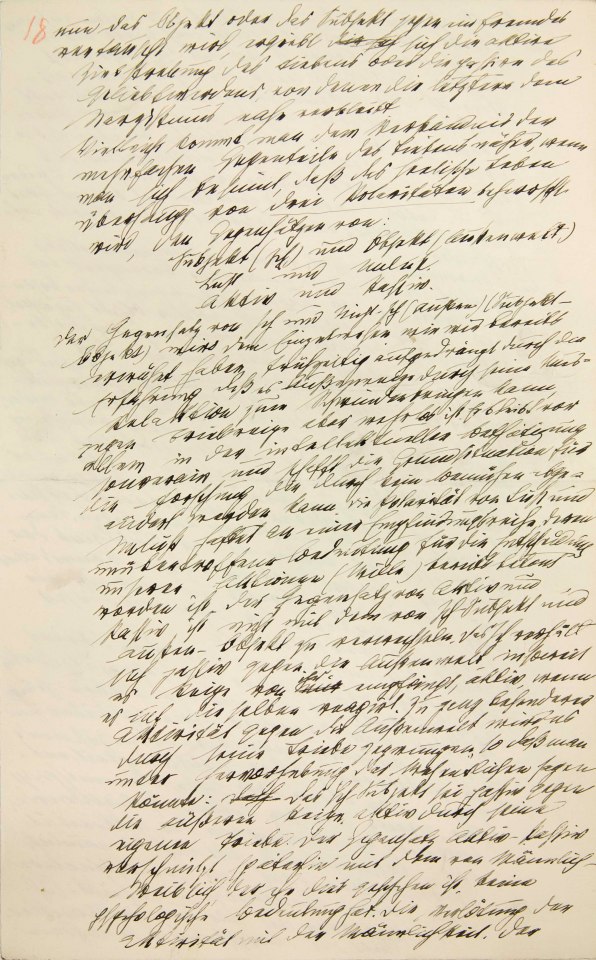 18
nun das Objekt oder das Subjekt gegen ein fremdes
vertauscht wird ergiebt sich die aktive
Zielstrebung des Liebens oder die passive des
Geliebtwerdens, von denen die letztere dem
Narzißmus nahe verbleibt
Vielleicht kommt man dem Verständnis der
mehrfachen Gegenteile des Liebens näher, wenn
man sich besinnt, daß das seelische Leben
überhaupt von drei Polaritäten beherrscht
wird, den Gegensätzen von:
Subjekt (Ich) und Objekt (Außenwelt)
Lust und Unlust.
Aktiv und Passiv.
Der Gegensatz von Ich und Nicht-Ich (Außen) (Subjekt-
Objekt) wird dem Einzelwesen wie wir bereits
erwähnt haben, frühzeitig aufgedrängt durch die
Erfahrung, daß es Außenreize durch seine Mus-
kelaktion zum Schweigen bringen kann,
gegen Triebreize aber wehrlos ist. Er bleibt vor
allem in der intellektuellen Bethätigung
souverain und schafft die Grundsituation für
die Forschung, die durch kein Bemühen abge-
ändert werden kann. Die Polarität von Lust und
Unlust haftet an einer Empfindungsreihe, deren
unübertroffene Bedeutung für die Entscheidung
unserer Aktionen (Wille) bereits betont
worden ist. Der Gegensatz von Aktiv und
Passiv ist nicht mit dem von Ich-Subjekt und
Außen-Objekt zu verwechseln. Das Ich verhält
sich passiv gegen die Außenwelt insoweit
es Reize von ihr empfängt, aktiv wenn
es auf dieselben reagirt. Zu ganz besonderer
Aktivität gegen die Außenwelt wird es
durch seine Triebe gezwungen, so daß man
unter Hervorhebung des Wesentlichen sagen
könnte: Das Ich-Subjekt sei passiv gegen
die äußeren Reize, aktiv durch seine
eigenen Triebe. Der Gegensatz Aktiv-Passiv
verschmilzt späterhin mit dem von Männlich-
Weiblich der, ehe dies geschehen ist, keine
psychologische Bedeutung hat. Die Verlötung der
Aktivität mit der Männlichkeit. der